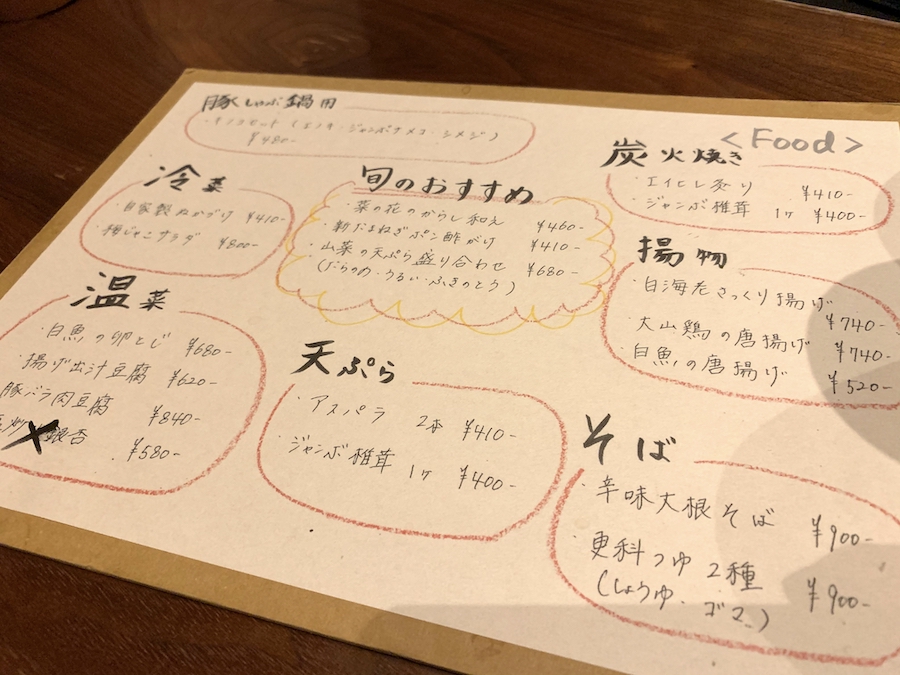 <Food>
豚しゃぶ鍋用
・キノコセット(エノキ・ジャンボナメコ・シメジ)
¥480-
冷菜
・自家製ぬかづけ ¥410-
・梅じゃこサラダ ¥800-
旬のおすすめ
・菜の花のからし和え ¥460-
・新たまねぎポン酢がけ ¥410-
・山菜の天ぷら盛り合わせ ¥680-
(たらのめ・うるい・ふきのとう)
炭火焼き
・エイヒレ炙り ¥410-
・ジャンボ椎茸 1ケ ¥400-
揚物
・白海老さっくり揚げ ¥740-
・大山鶏の唐揚げ ¥740-
・白魚の唐揚げ ¥520-
温菜
・白魚の卵とじ ¥680-
・揚げ出汁豆腐 ¥620-
豚バラ肉豆腐 ¥840-
銀杏 ¥580-
天ぷら
・アスパラ 2本 ¥410-
・ジャンボ椎茸 1ケ ¥400-
そば
・辛味大根そば ¥900-
・更科つゆ2種 ¥900-
(しょうゆ・ゴマ)